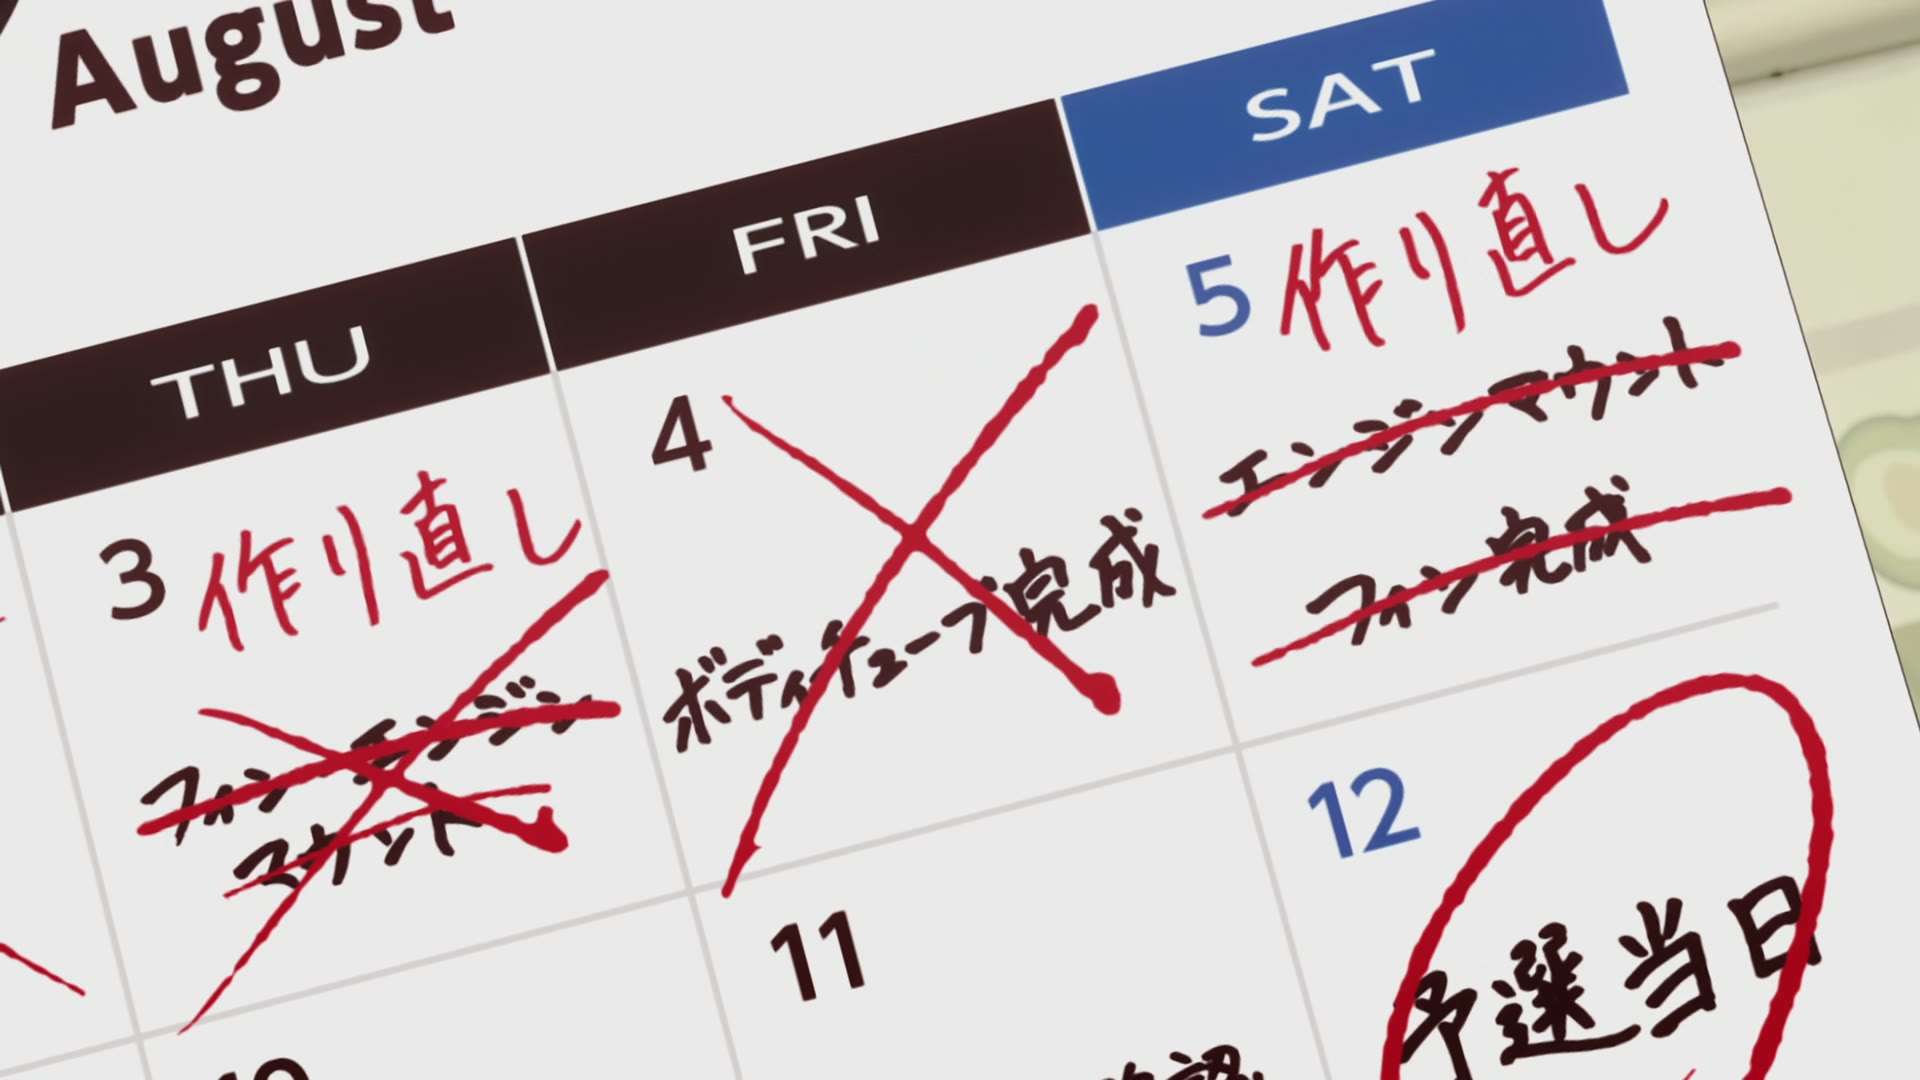 August
THU
FRI
SAT
3 作り直し
フィン エンジン
マウント
4
ボディチューブ完成
5 作り直し
エンジンマウント
フィン完成
10
11
12
予選当日